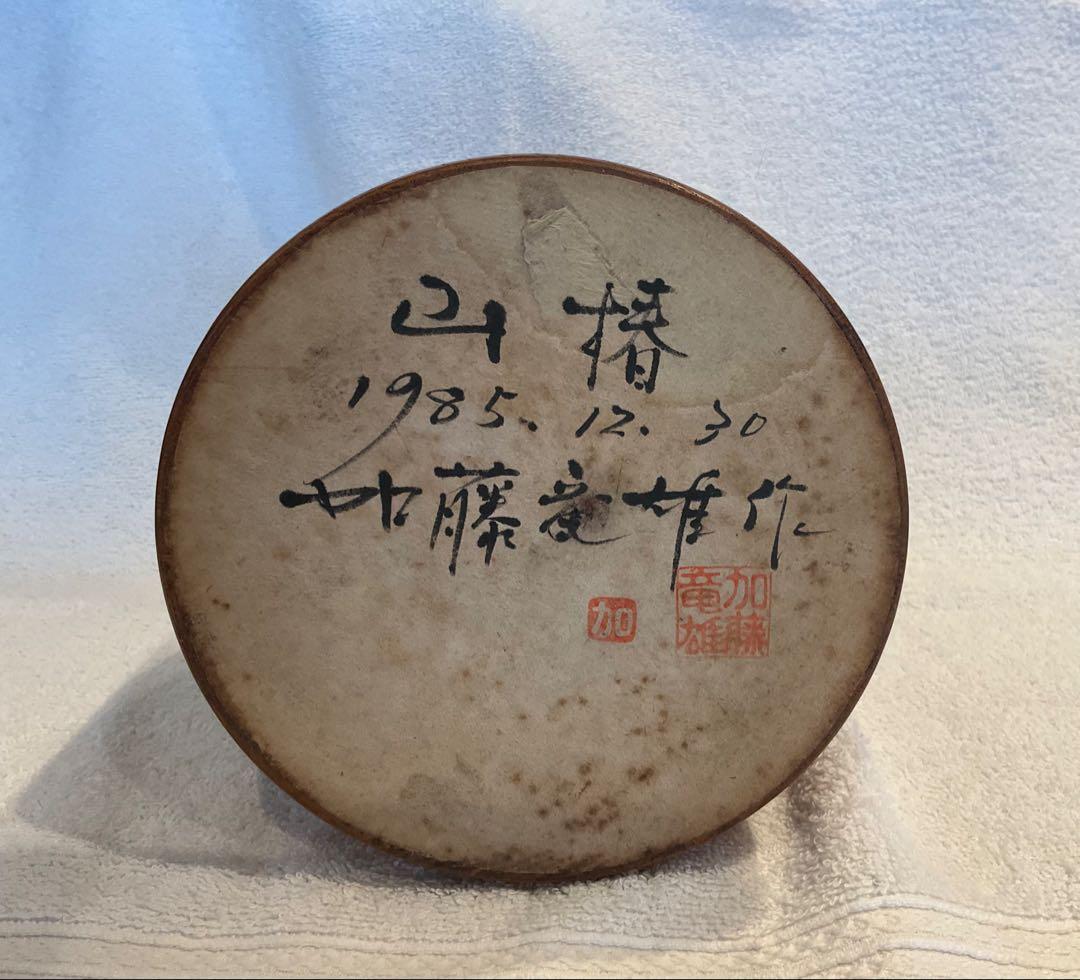 山椿
1985.12.30
加藤竜雄作
加
加藤
竜雄